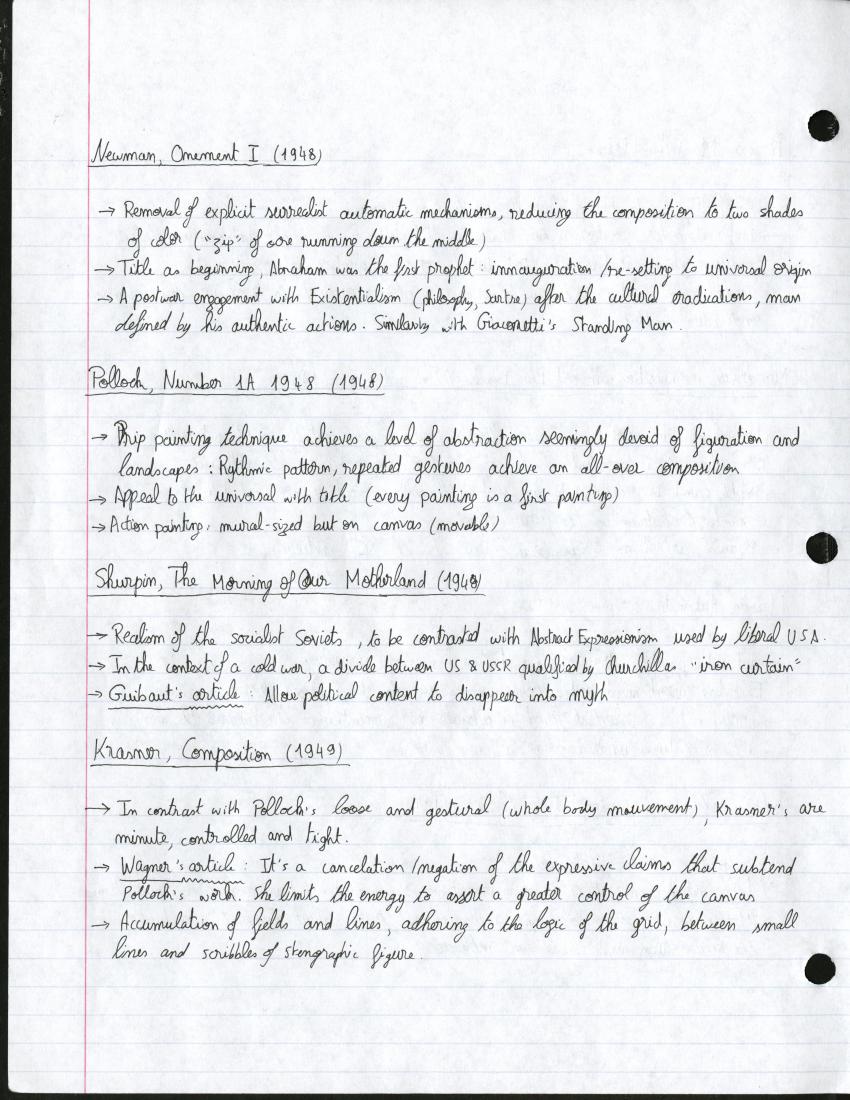 Newman, Onement I (1948)
→ Removal of explicit surrealist automatic mechanisms, reducing the composition to two shades
of color ("zip" of ore running down the middle)
→ Title as beginning, Abraham was the first prophet : innauguration /re-setting to universal origin
→ A postwar engagement with Existentialism (philosophy, Sartre) after the cultural eradications, man
defined by his authentic actions. Similarity with Giacometti's Standing Man.
Pollock, Number 1A 1948 (1948)
→ Drip painting technique achieves a level of abstraction seemingly devoid of figuration and
landscapes : Rythmic pattern, repeated gestures achieve an all-over composition
→ Appeal to the universal with title (every painting is a first painting)
→ Action painting: mural-sized but on canvas (movable)
Shurpin, The Morning of Our Motherland (1948)
→ Realism of the socialist Soviets, to be contrasted with Abstract Expressionism used by liberal USA.
→ In the context of a cold war, a divide between US & USSR qualified by Churchill as "iron curtain"
→ Guibaut's article : Allow political content to disappear into myth
Krasner, Composition (1949)
→ In contrast with Pollock's loose and gestural (whole body mouvement), Krasner's are
minute, controlled and tight.
→ Wagner's article : It's a cancelation /negation of the expressive claims that subtend
Pollock's work. She limits the energy to assert a greater control of the canvas
→ Accumulation of fields and lines, adhering to the logic of the grid, between small
lines and scribbles of stengraphic figure.